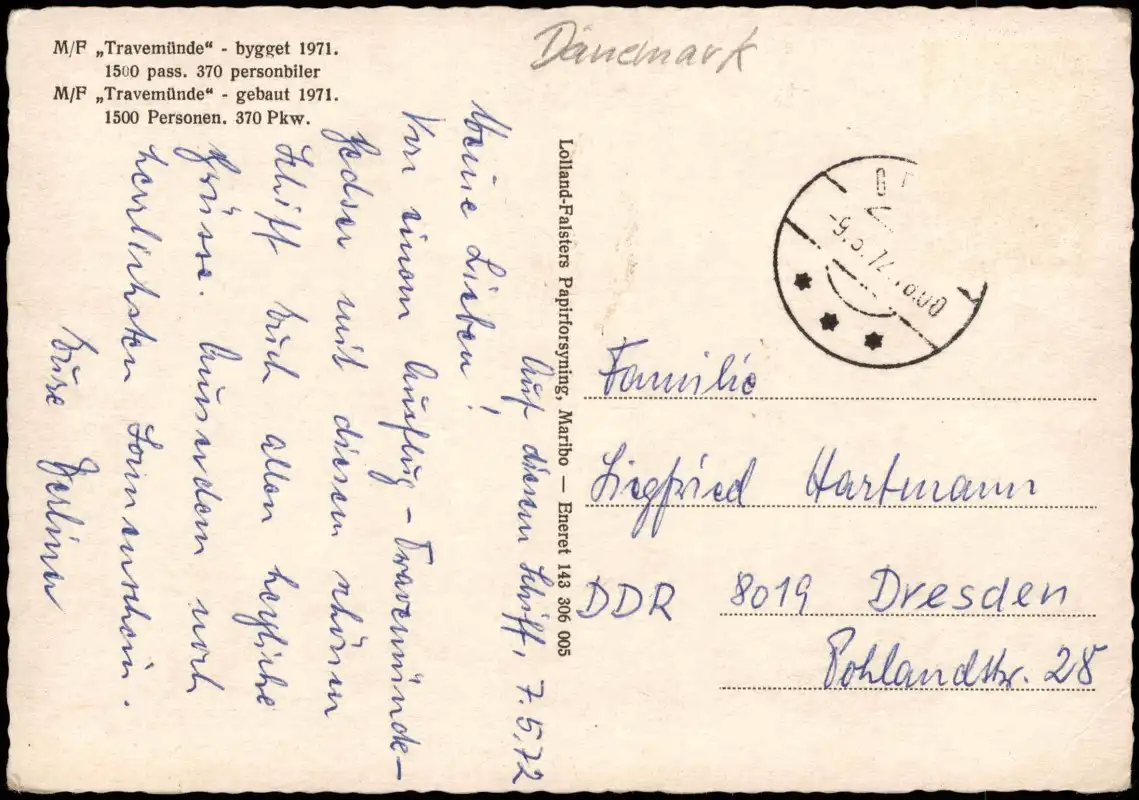 M/F „Travemünde“ - bygget 1971.
1500 pass. 370 personbiler
M/F „Travemünde“ - gebaut 1971.
1500 Personen. 370 Pkw.
Dänemark
Auf diesem Schiff, 7.5.72
Meine Lieben!
Von einem Ausflug – Travemünde–
Gedser mit diesem schönen
Schiff Euch allen herzliche
Grüsse. Ausserdem noch
herrlichsten Sonnenschein.
Eure Berliner
Lolland-Falsters Papirforsyning, Maribo — Eneret 143 306 005
Familie
Siegfried Hartmann
DDR 8019 Dresden
Pohlandstr. 28